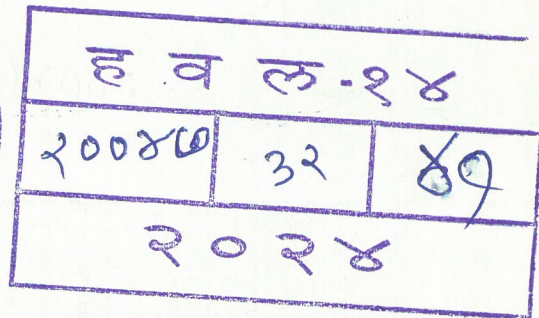 ह व ल-१४
२००४७ ३२ ४१
२०२४